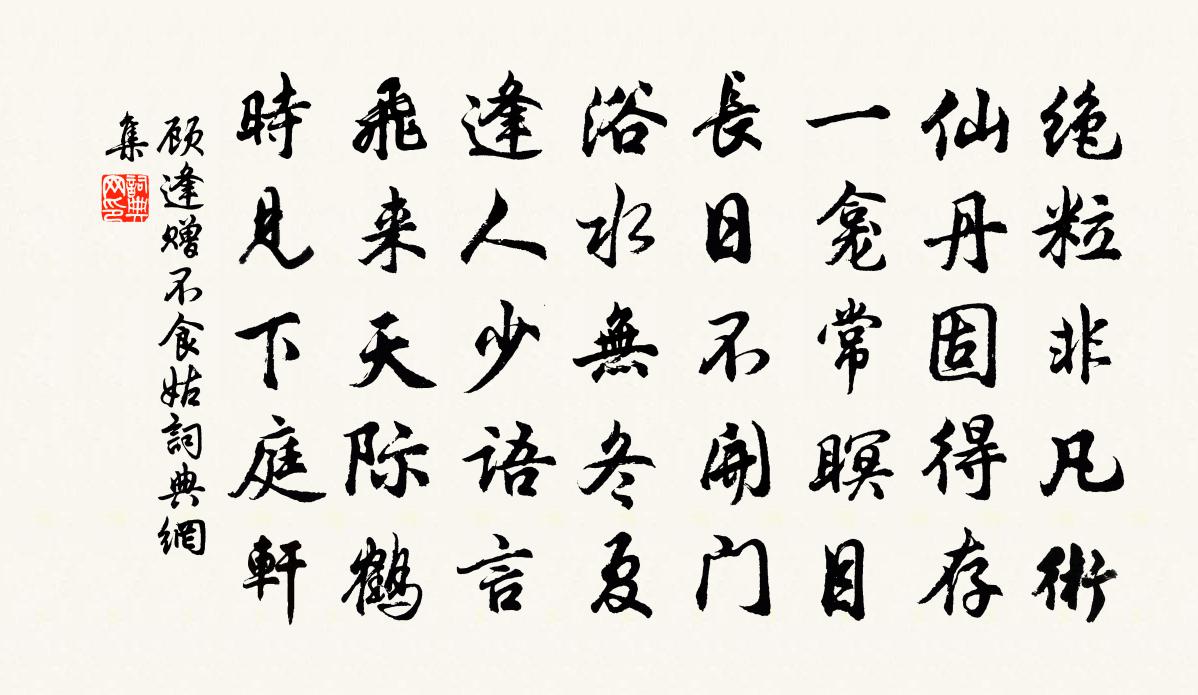 绝粒非凡術
仙丹固得存
一龛常瞑目
長日不開门
浴水無冬夏
逢人少语言
飛来天际鹤
時見下庭軒
顾逢赠不食姑詞典網
集
詞典网印